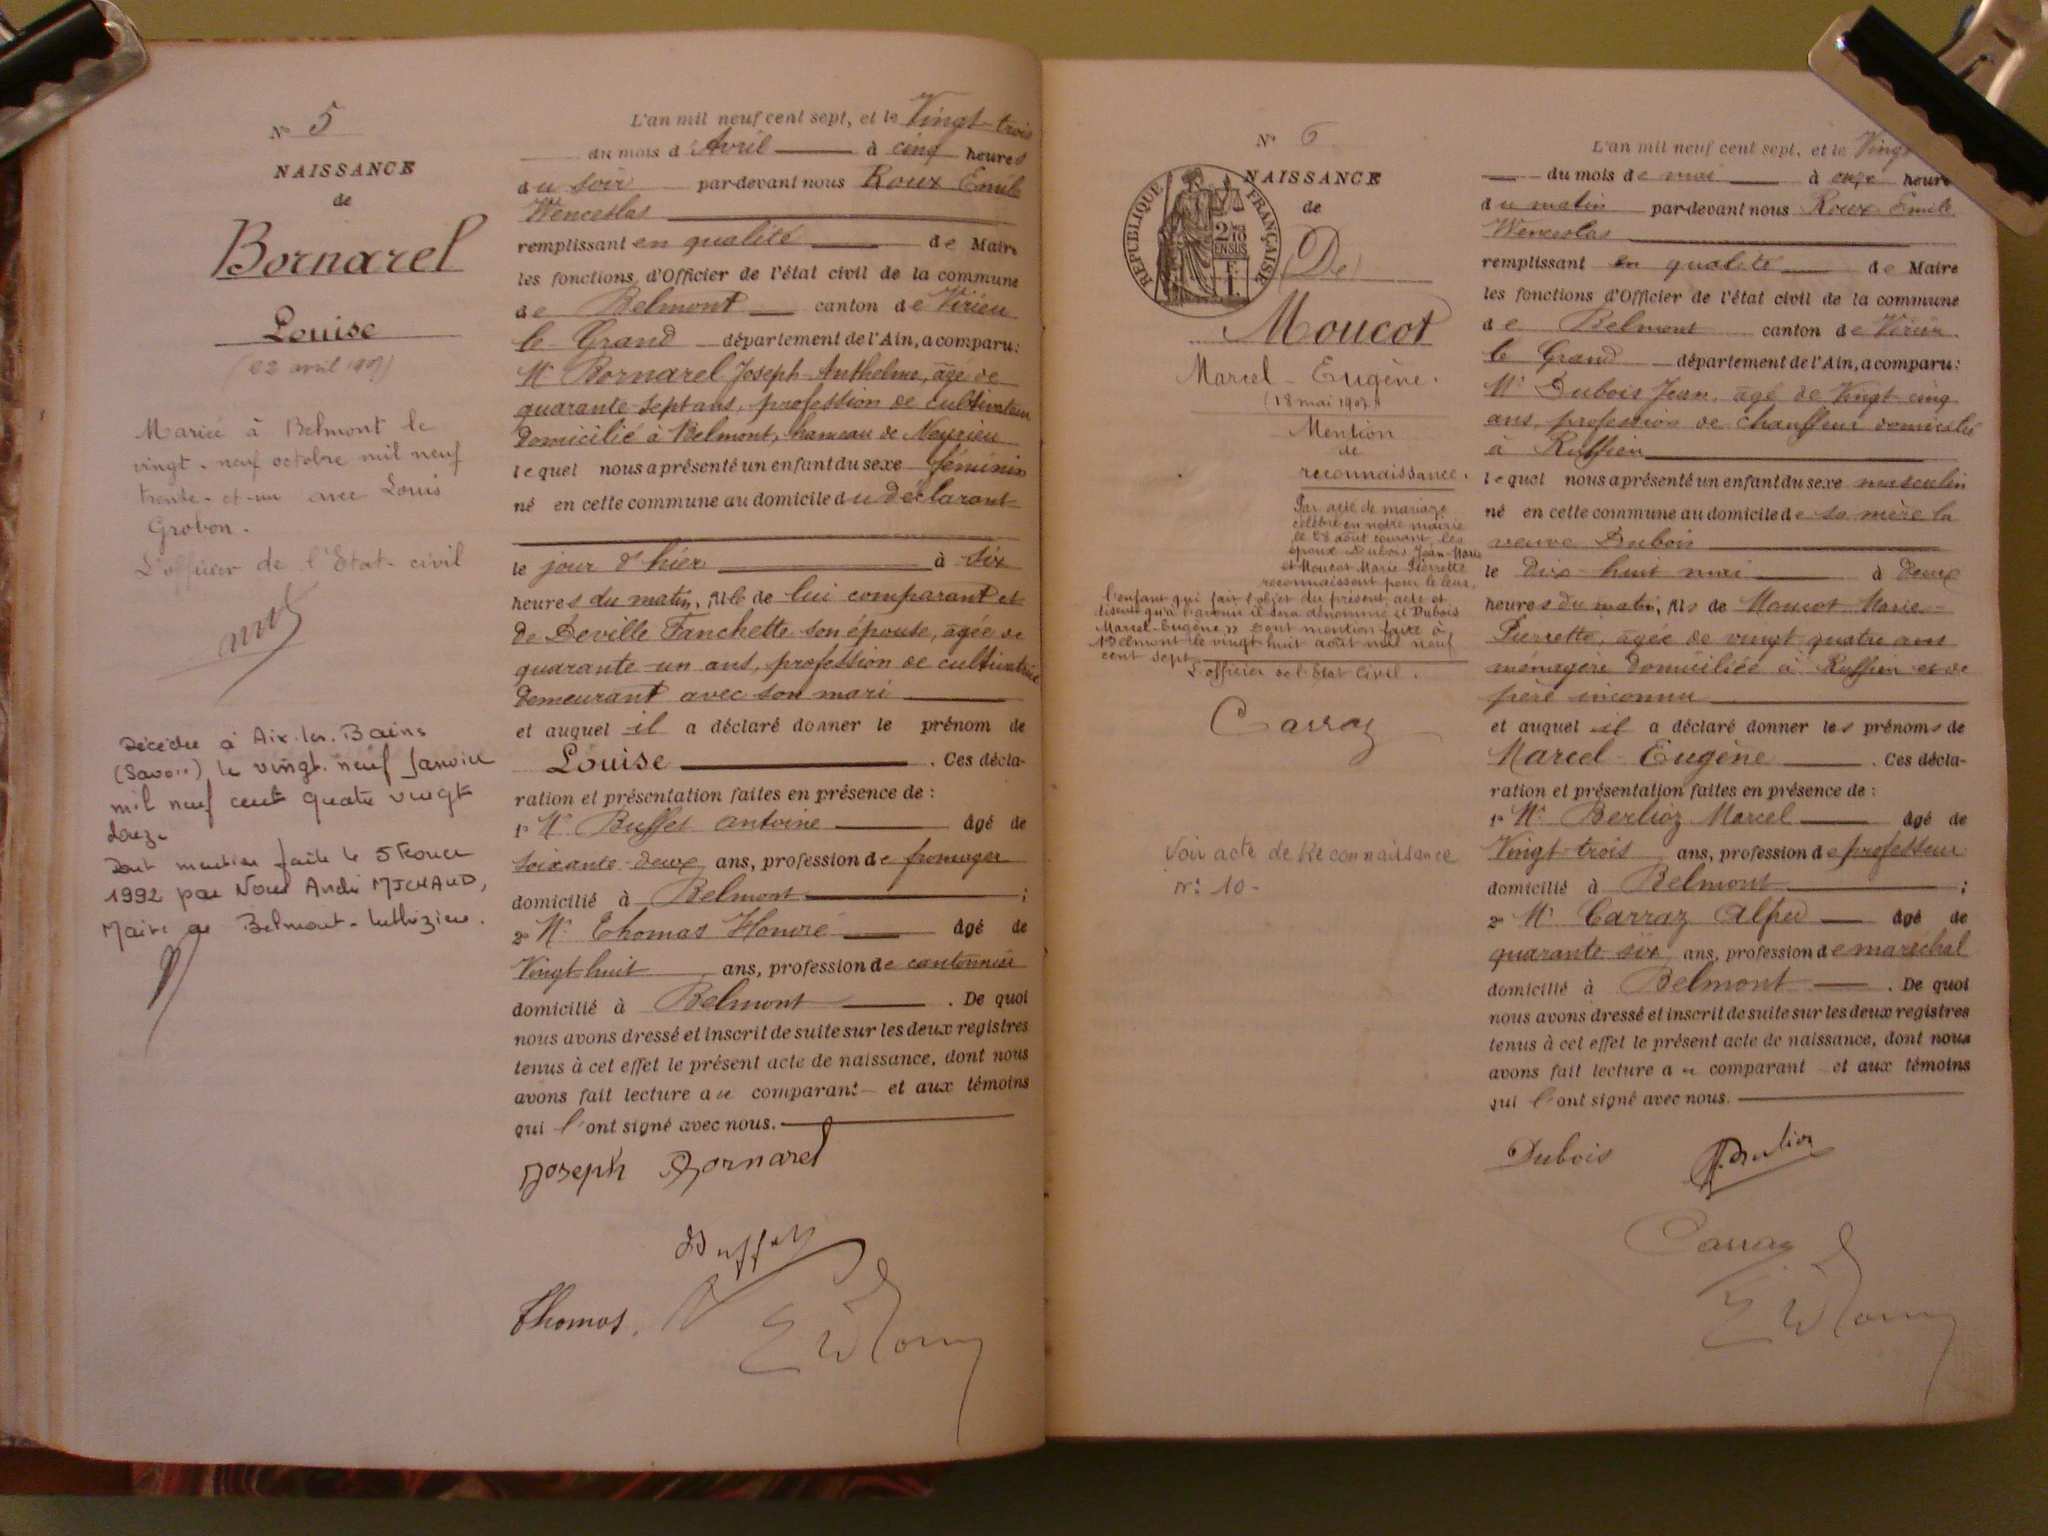 N° 5
NAISSANCE
de
Bornarel
Louise
(22 avril 1907)
Mariée à Belmont le
vingt-neuf octobre mil neuf
trente-et-un avec Louis
Grobon.
L'officier de l'Etat-civil
Décédée à Aix-les-Bains
(Savoie) le vingt-neuf Janvier
mil neuf cent quatre vingt
douze
Dont mention faite le 5 février
1992 par Nous André MICHAUD,
Maire de Belmont-Luthézieu.
L'an mil neuf cent sept, et le Vingt-trois
du mois d'Avril à cinq heures
du soir par-devant nous Roux Emile
Wenceslas
remplissant en qualité de Maire
les fonctions d'Officier de l'état civil de la commune
de Belmont canton de Virieu
le Grand département de l'Ain, a comparu:
Mr Bornarel Joseph-Anthelme, âgé de
quarante-sept ans, profession de cultivateur
domicilié à Belmont, hameau de Neyrieu
lequel nous a présenté un enfant du sexe féminin
né en cette commune au domicile du déclarant
le jour d'hier à six
heures du matin, fille de lui comparant et
de Deville Fanchette son épouse, âgée de
quarante-un ans, profession de cultivatrice
demeurant avec son mari
et auquel il a déclaré donner le prénom de
Louise . Ces décla-
ration et présentation faites en présence de :
1° Mr Buffet Antoine âgé de
soixante-deux ans, profession de fromager
domicilié à Belmont ;
2° Mr Thomas Honoré âgé de
Vingt-huit ans, profession de cantonnier
domicilié à Belmont . De quoi
nous avons dressé et inscrit de suite sur les deux registres
tenus à cet effet le présent acte de naissance, dont nous
avons fait lecture au comparant et aux témoins
qui l'ont signé avec nous.
Joseph Bornarel
Buffet
Thomas
N° 6
NAISSANCE
de
RÉPUBLIQUE FRANÇAISE
(De)
Moucot
Marcel-Eugène.
(18 mai 1907)
Mention
de
reconnaissance.
Par acte de mariage
célébré en notre mairie
le 28 août courant, les
époux Dubois Jean-Marie
et Moucot Marie Pierrette
reconnaissent pour le leur,
l'enfant qui fait l'objet du présent acte et
disent qu'à l'avenir il sera dénommé « Dubois
Marcel-Eugène » Dont mention faite à
Belmont le vingt huit août mil neuf
cent sept
L'officier de l'Etat Civil.
Carraz
Voir acte de Reconnaissance
n° 10-
L'an mil neuf cent sept, et le Vingt
du mois de mai à onze heures
du matin par-devant nous Roux Emile
Wenceslas
remplissant en qualité de Maire
les fonctions d'Officier de l'état civil de la commune
de Belmont canton de Virieu
le Grand département de l'Ain, a comparu:
Mr Dubois Jean, âgé de Vingt cinq
ans, profession de chauffeur domicilié
à Ruffieu
lequel nous a présenté un enfant du sexe masculin
né en cette commune au domicile de sa mère la
veuve Dubois
le Dix-huit mai à deux
heures du matin, fils de Moucot Marie-
Pierrette, âgée de vingt-quatre ans
ménagère domiciliée à Ruffieu et de
père inconnu
et auquel il a déclaré donner les prénoms de
Marcel-Eugène . Ces décla-
ration et présentation faites en présence de :
1° Mr Berlioz Marcel âgé de
Vingt-trois ans, profession de professeur
domicilié à Belmont ;
2° Mr Carraz Alfred âgé de
quarante six ans, profession de maréchal
domicilié à Belmont . De quoi
nous avons dressé et inscrit de suite sur les deux registres
tenus à cet effet le présent acte de naissance, dont nous
avons fait lecture au comparant et aux témoins
qui l'ont signé avec nous.
Dubois
Carraz